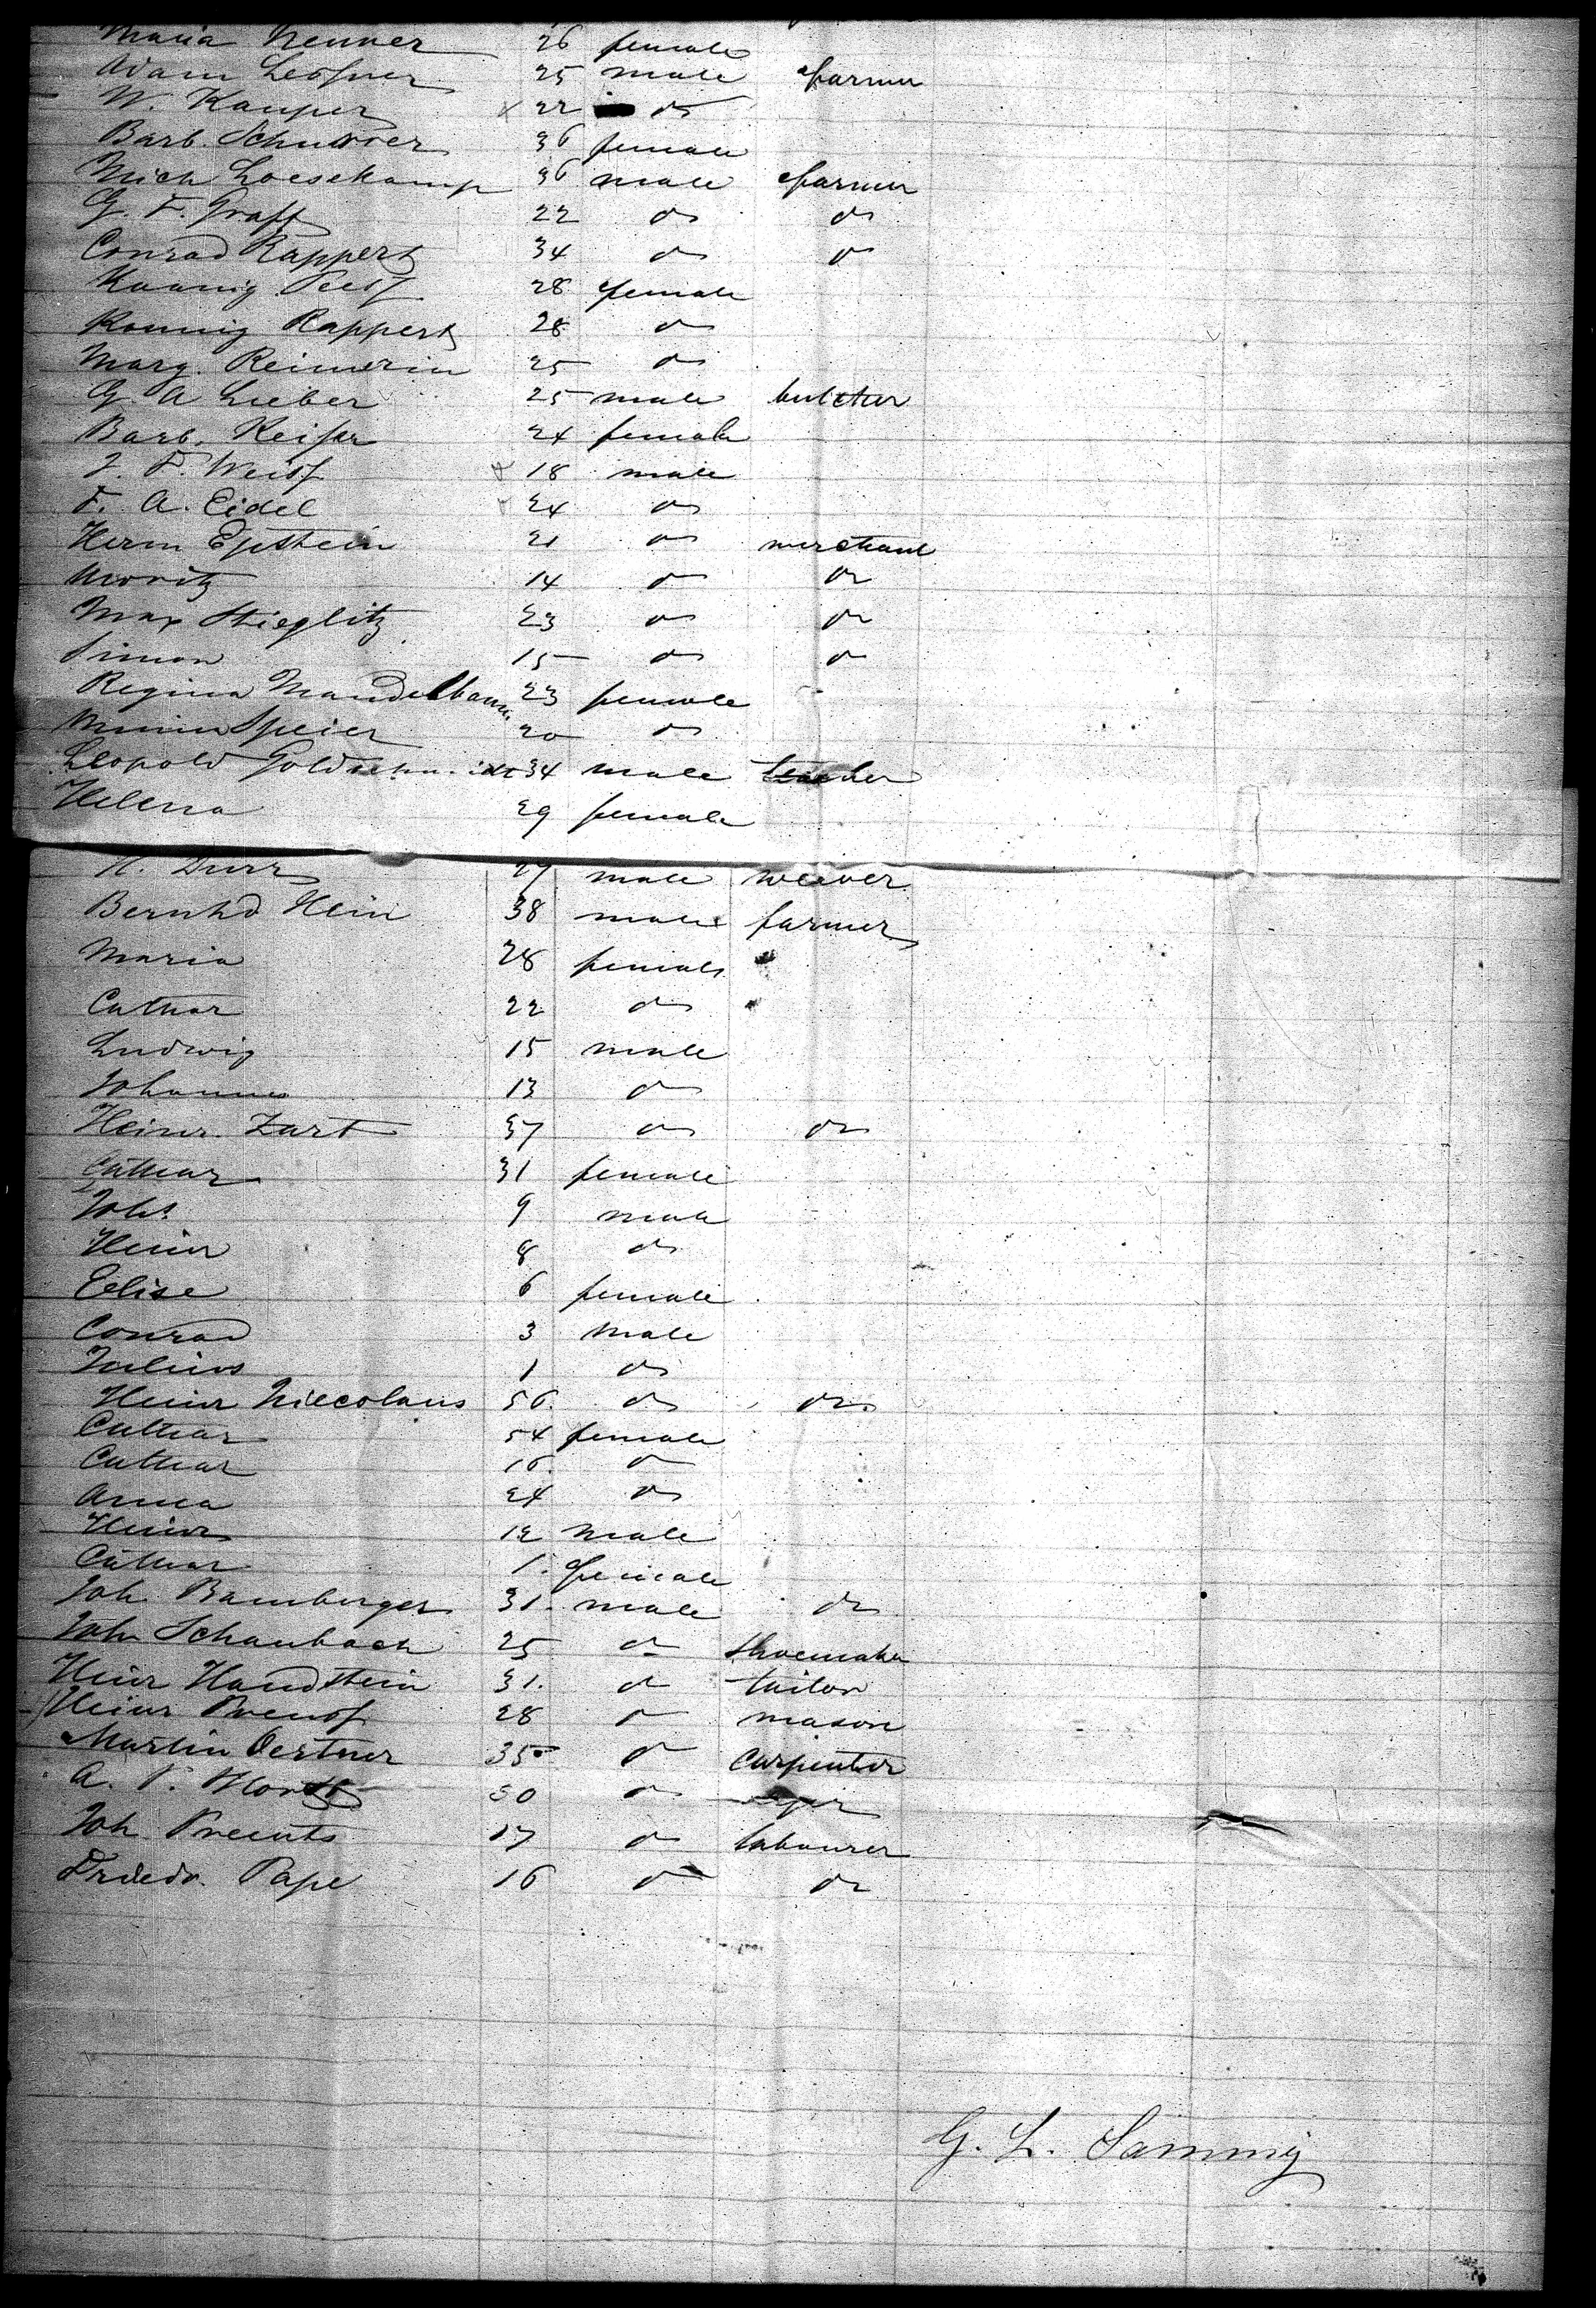 Maria Renner 26 female
Adam Lessner 25 male farmer
W. Kamper 22 do
Barb. Schuster 36 female
Mich Loesekamp 36 male farmer
G. F. Graff 22 do do
Conrad Rappert 34 do do
28 female
Rappert 28 do
Marg. Reimerin 25 do
G. A Lieber 25 male butcher
Barb. Keiser 24 female
J. F. Weiss 18 male
F. A. Eidel 24 do
Herm Epstein 21 do merchant
Moritz 14 do do
Max Stieglitz 23 do do
Simon 15 do do
Regina Mandelbaum 23 female
Minna Speier 20 do
Leopold Goldschmidt 34 male teacher
Helena 29 female
N. Durr 27 male weaver
Bernhd Hein 38 male farmer
Maria 28 female
Cathar 22 do
Ludwig 15 male
Johannes 13 do
Heinr. Zart 37 do do
Cathar 31 female
Johs 9 male
Heinr 8 do
Eelise 6 female
Conrad 3 male
Julius 1 do
Heinr Niecolaus 56 do do
Cathar 54 female
Cathar 16 do
Anna 24 do
Heinr 12 male
Cathar 1 female
Joh Bamberger 31 male do
Joh Schaubach 25 do shoemaker
Heinr Handstein 31 do tailor
Heinr 28 do mason
Martin Oertner 35 do carpenter
A. 30 do
Joh 17 do labourer
Friedr. Pape 16 do do
G. L. Sammy